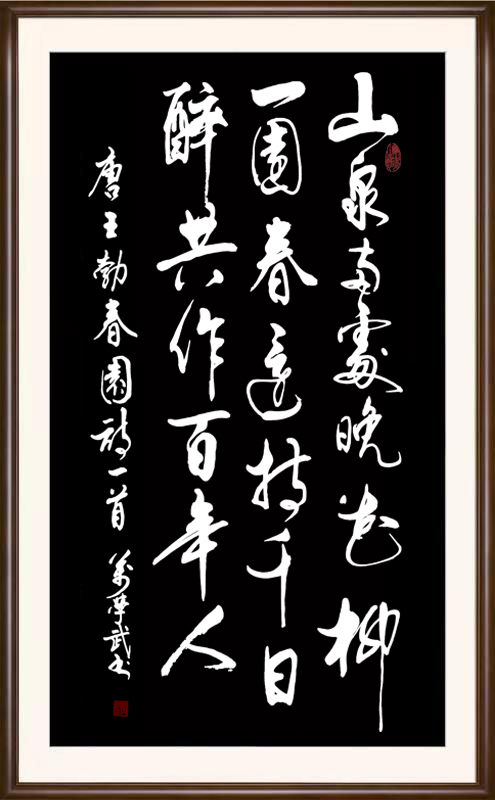 山泉兩處晚花柳
一園春還持千日
醉共作百年人
唐王勃春園詩一首 萬武书